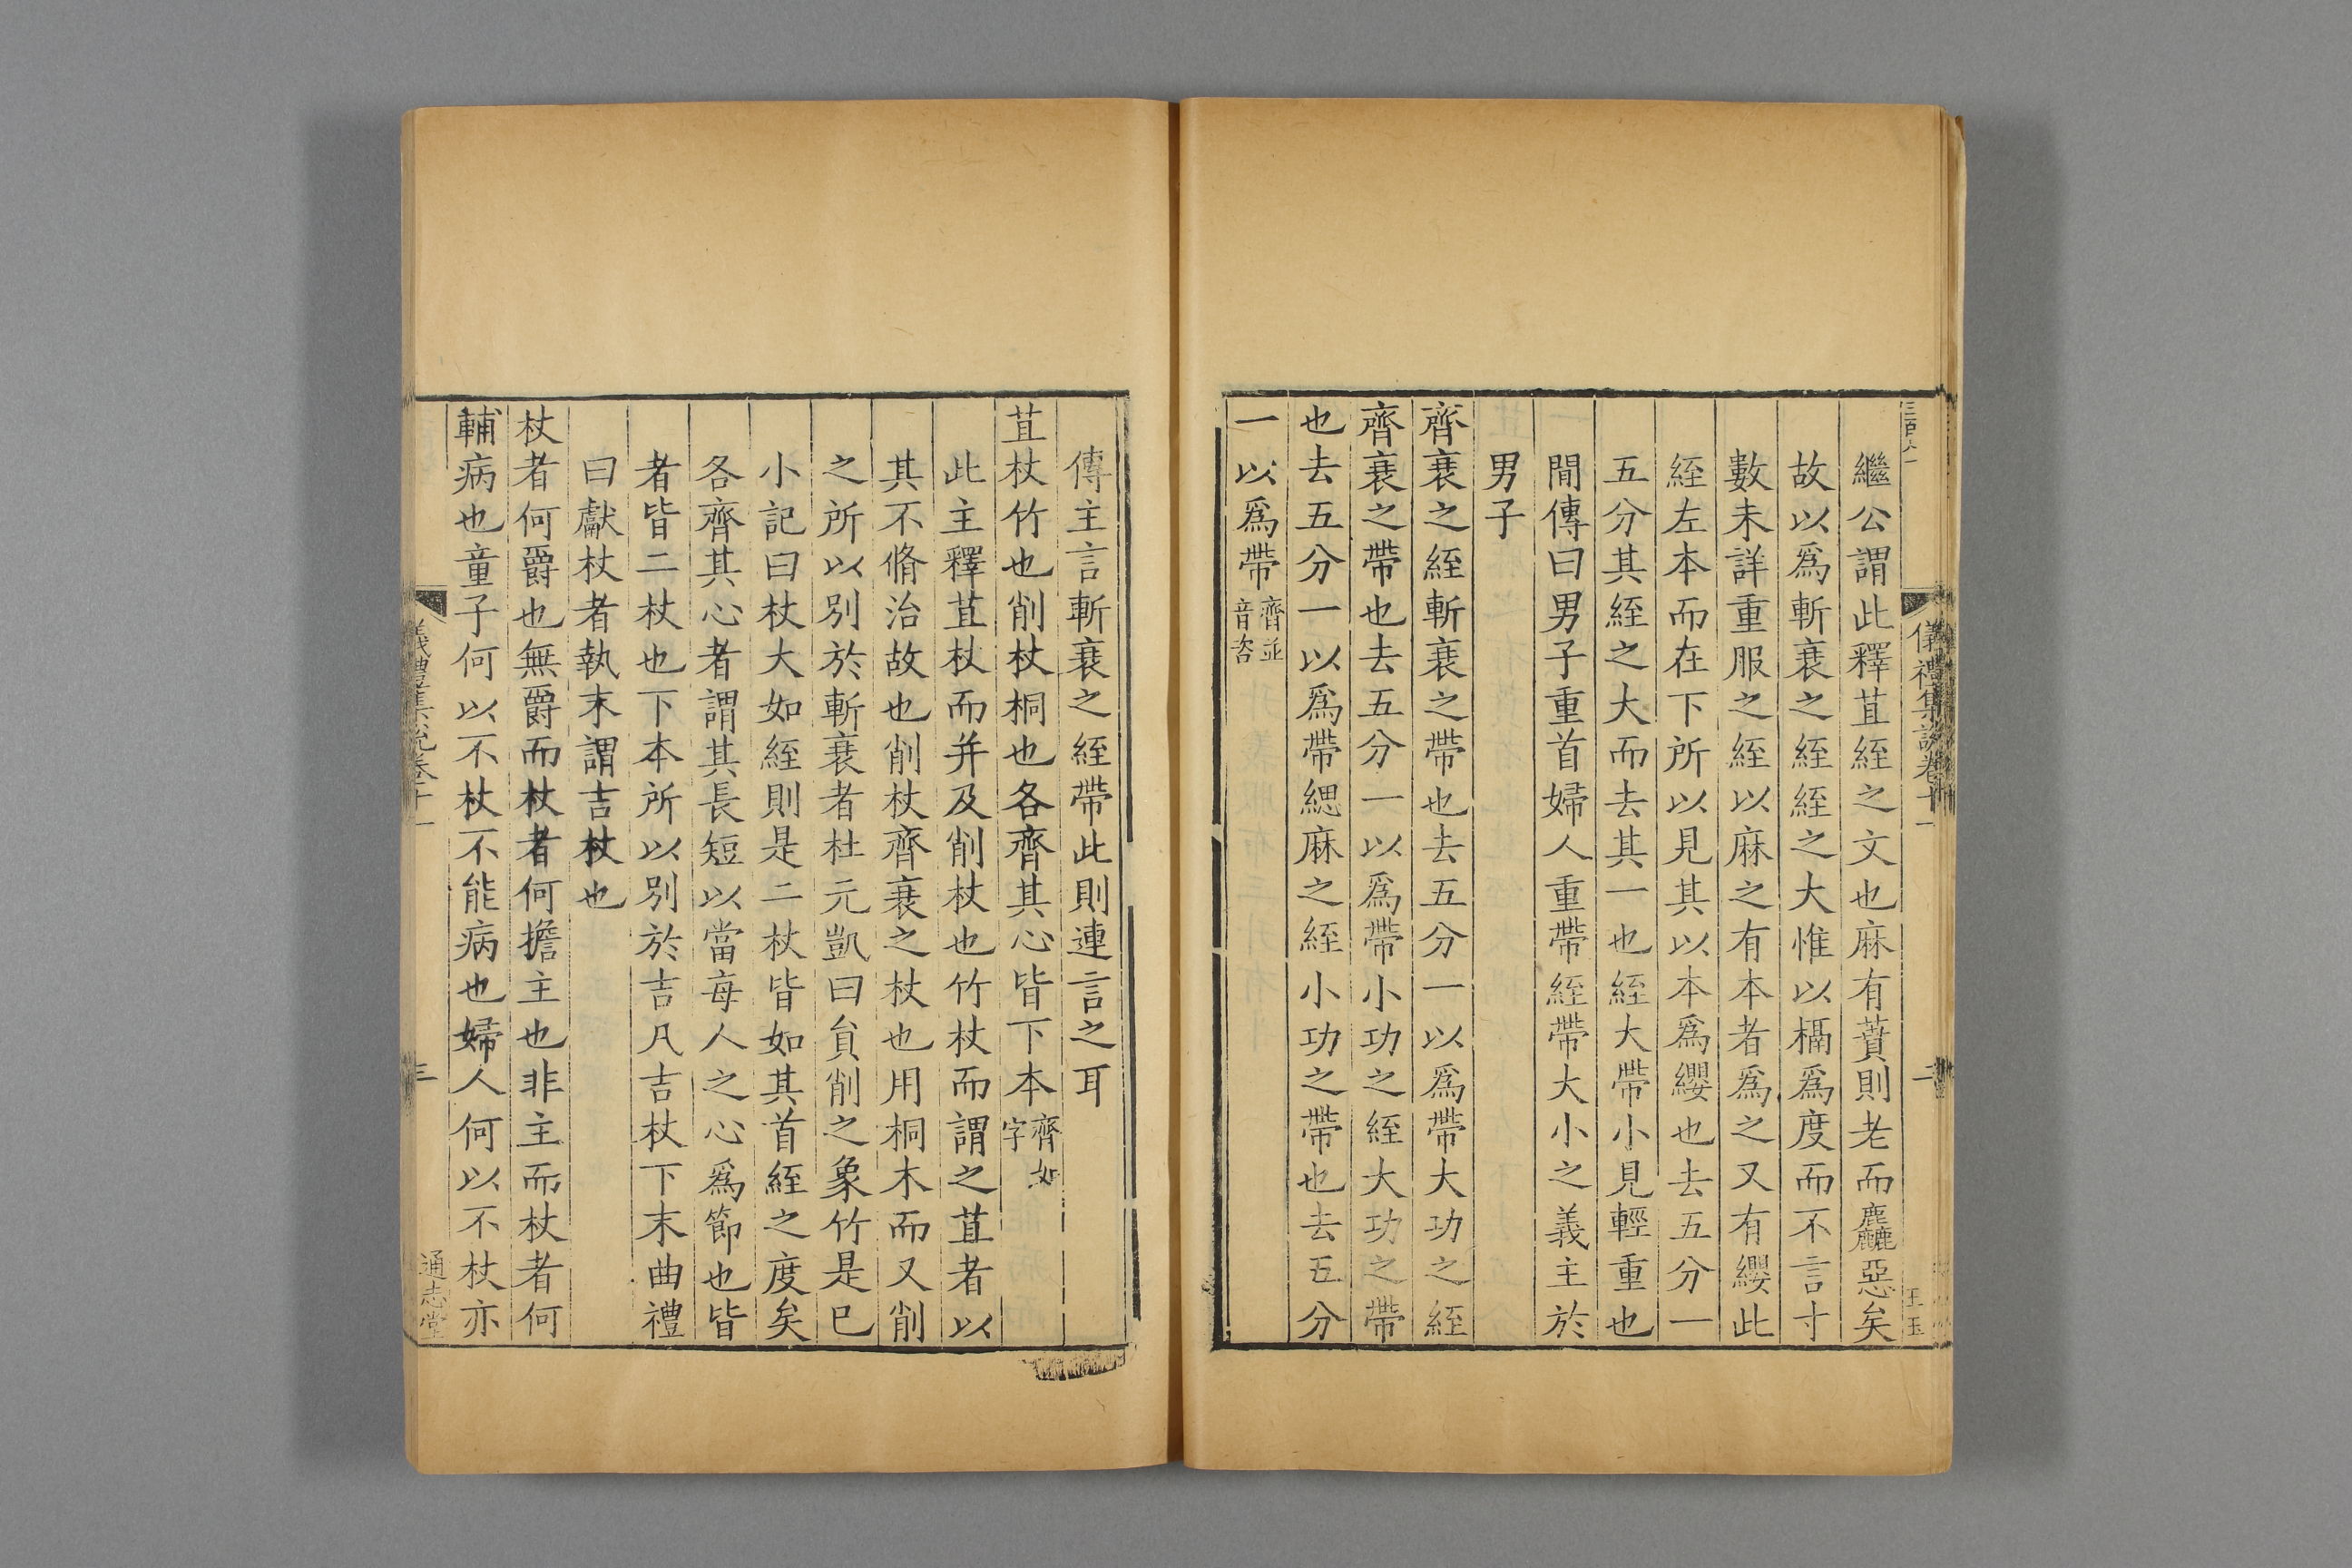 儀禮集說卷十一
二
王玉
繼公謂此釋苴絰之文也麻有蕡則老而麤惡矣
故以為斬衰之絰絰之大惟以搹為度而不言寸
數未詳重服之絰以麻之有本者為之又有纓此
絰左本而在下所以見其以本為纓也去五分一
五分其絰之大而去其一也絰大帶小見輕重也
間傳曰男子重首婦人重帶絰帶大小之義主於
男子
齊衰之絰斬衰之帶也去五分一以為帶大功之絰
齊衰之帶也去五分一以為帶小功之絰大功之帶
也去五分一以為帶緦麻之絰小功之帶也去五分
一以為帶齊並音咨
傳主言斬衰之絰帶此則連言之耳
苴杖竹也削杖桐也各齊其心皆下本齊如字
此主釋苴杖而并及削杖也竹杖而謂之苴者以
其不脩治故也削杖齊衰之杖也用桐木而又削
之所以別於斬衰者杜元凱曰負削之象竹是已
小記曰杖大如絰則是二杖皆如其首絰之度矣
各齊其心者謂其長短以當每人之心為節也皆
者皆二杖也下本所以別於吉凡吉杖下末曲禮
曰獻杖者執末謂吉杖也
杖者何爵也無爵而杖者何擔主也非主而杖者何
輔病也童子何以不杖不能病也婦人何以不杖亦
儀禮集說卷十一
三
通志堂